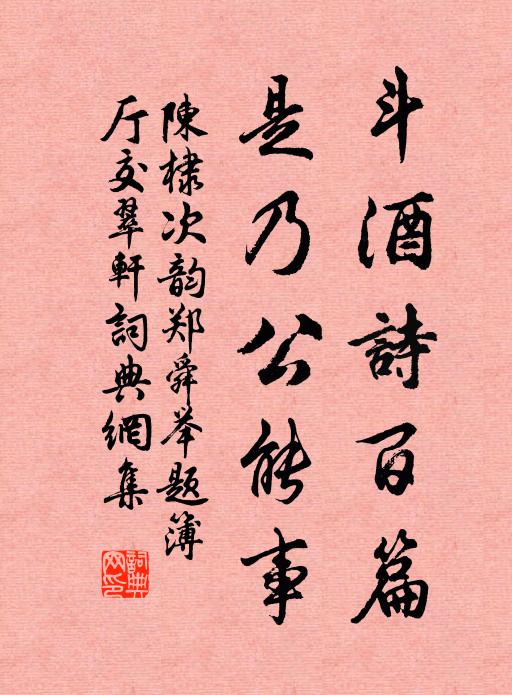 斗酒詩百篇
是乃公能事
陳棣次韵郑舜举题簿
厅交翠軒詞典網集
詞典网印